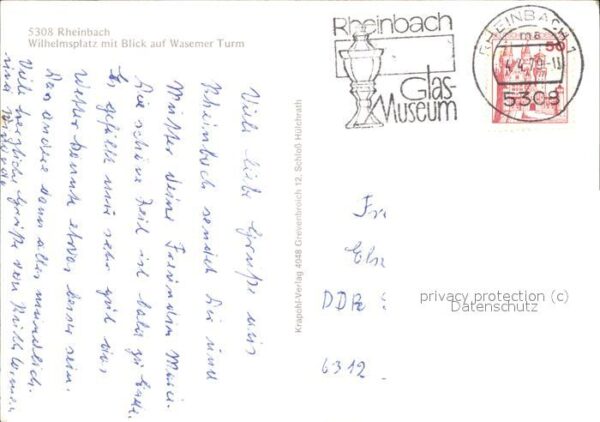 5308 Rheinbach
Wilhelmsplatz mit Blick auf Wasemer Turm
Viele liebe Grüße aus
Rheinbach sendet Dir und
Mutter Deine Freundin
Die schöne Zeit ist bald zu Ende.
Es gefällt mir sehr gut das
Wetter könnte etwas besser sein.
Das andere dann alles mündlich.
Viele herzliche Grüße von
Krapohl-Verlag 4048 Grevenbroich 12, Schloß Hülchrath
Rheinbach
Glas-
Museum
RHEINBACH 1
ma
4.4.79-11
5308
50
Fr
DDR
6312
privacy protection (c)
Datenschutz